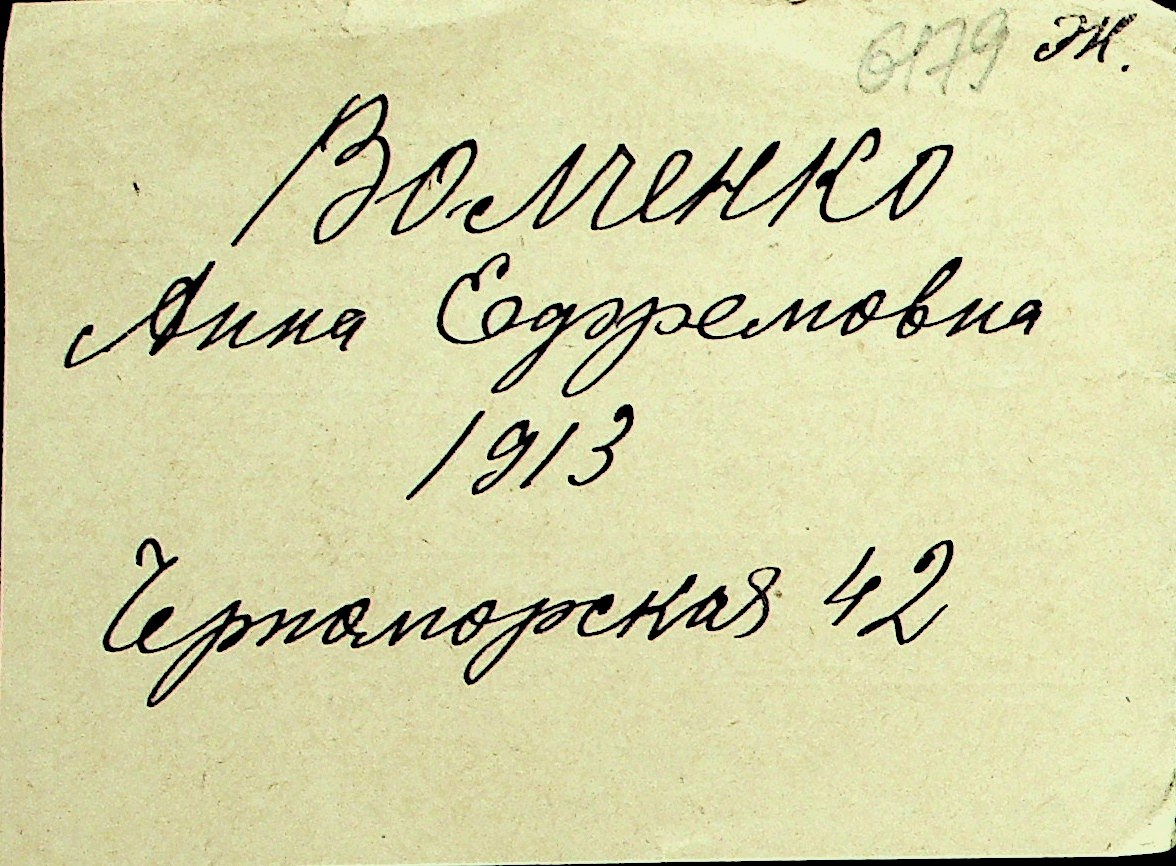 6179 Ж.
Волченко
Анна Ефремовна
1913
Черноморская 42